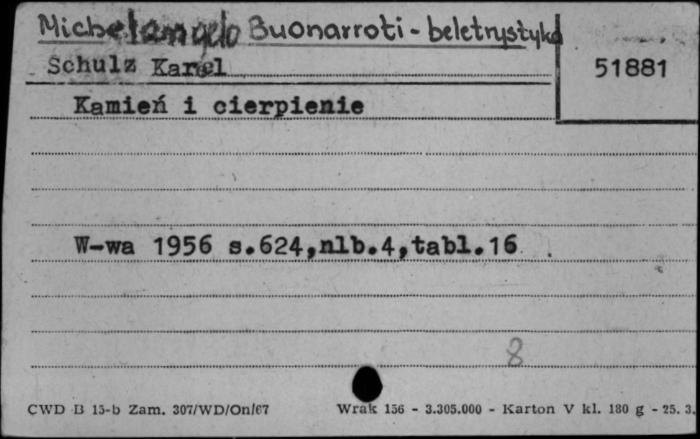 Michelangelo Buonarroti - beletrystyka
Schulz Karel
51881
Kamień i cierpienie
W-wa 1956 s.624,nlb.4,tabl.16 .
8
CWD B 15-b Zam. 307/WD/On/67 Wrak 156 - 3.305.000 - Karton V kl. 180 g - 25. 3.